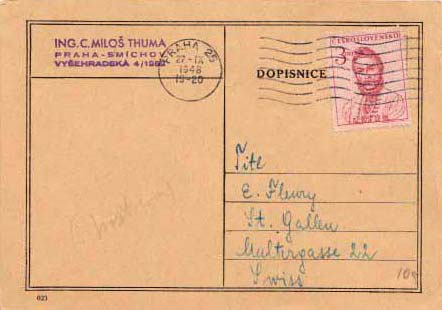 ING. C. MILOŠ THUMA
PRAHA-SMÍCHOV
VYŠEHRADSKÁ 4/1982
PRAHA 25
27.-IX
1948
19-20
DOPISNICE
ČESKOSLOVENSKO
3
Tit
E. Fleury
St. Gallen
Multergasse 22
Swiss
10
023